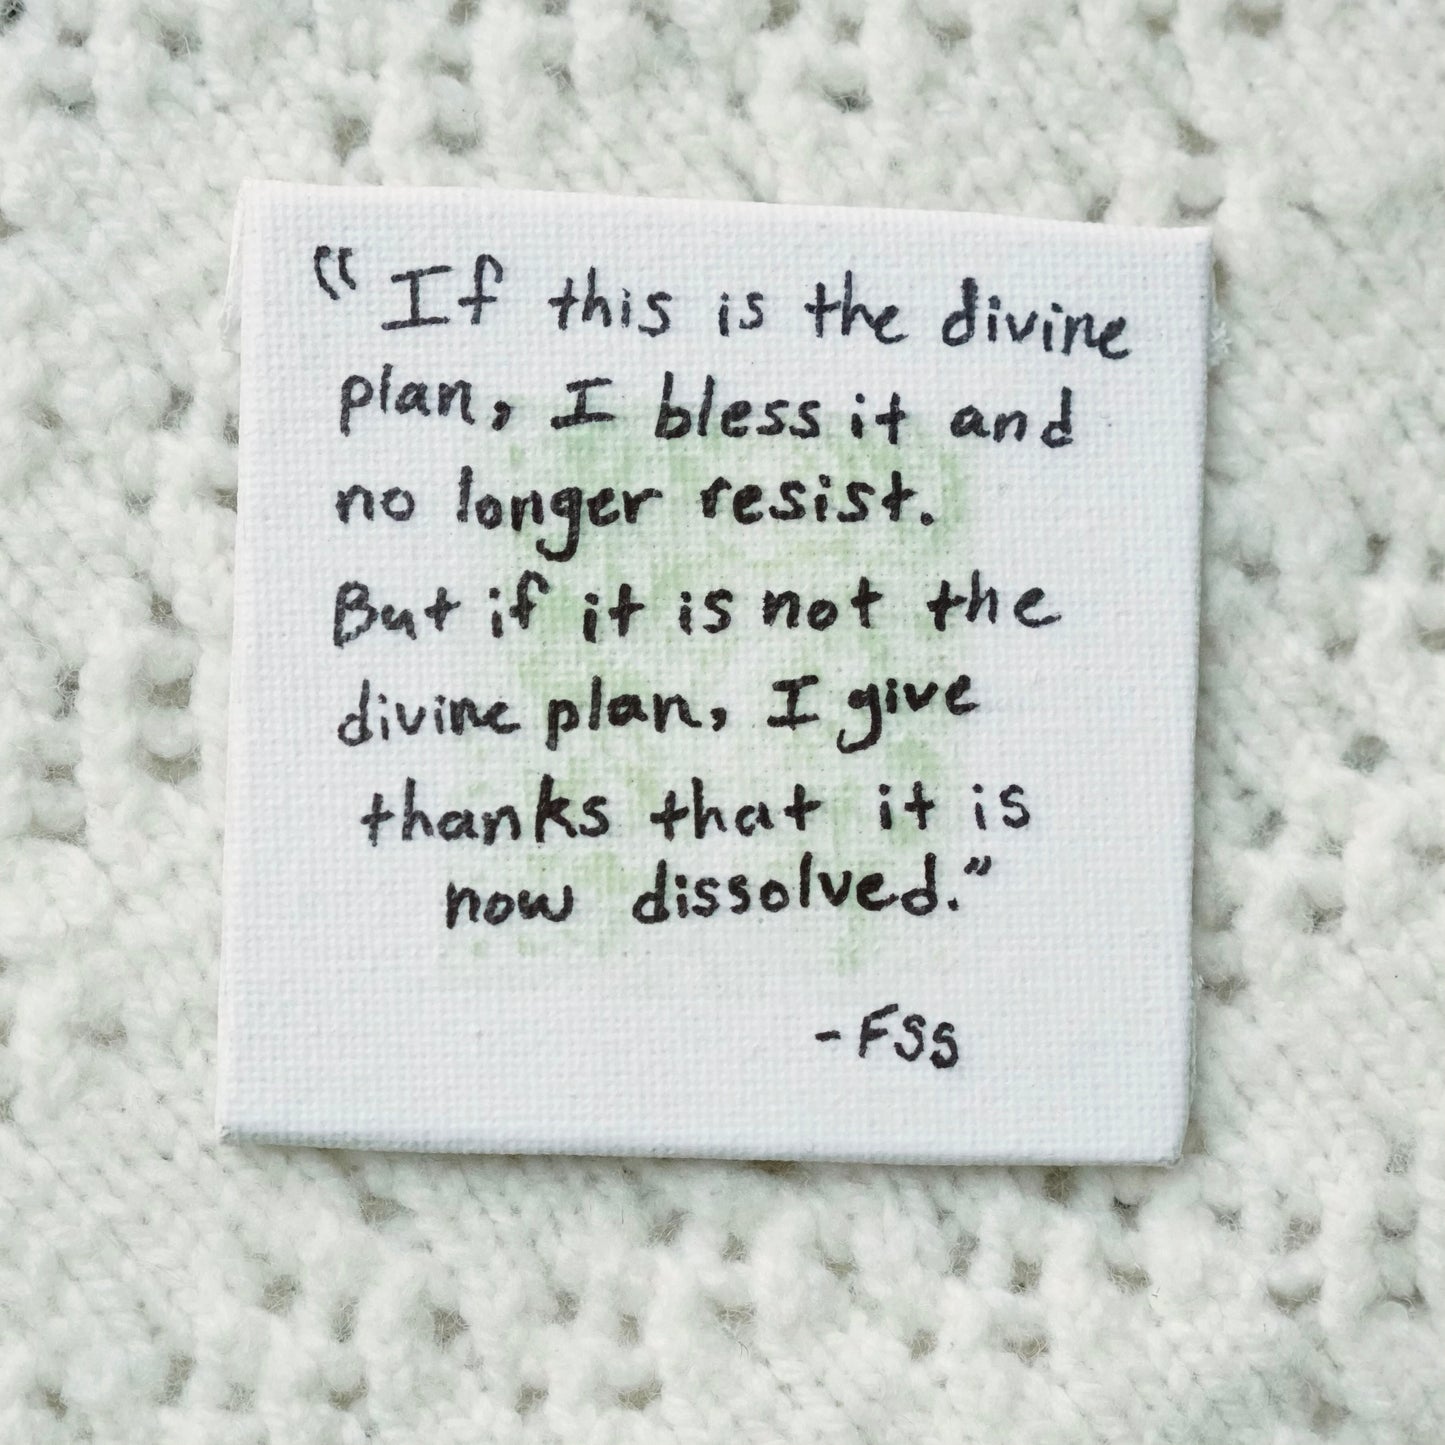 “If this is the divine
plan, I bless it and
no longer resist.
But if it is not the
divine plan, I give
thanks that it is
now dissolved.”
-FSS